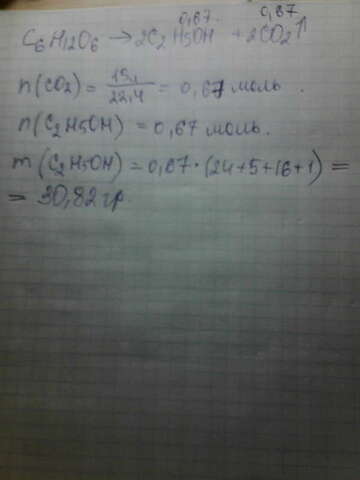 0,67. 0,67
C6H12O6 → 2C2H5OH + 2CO2↑
n(CO2) = 15,/22,4 = 0,67 моль .
n(C2H5OH) = 0,67 моль.
m(C2H5OH) = 0,67·(24+5+16+1) =
= 30,82 гр